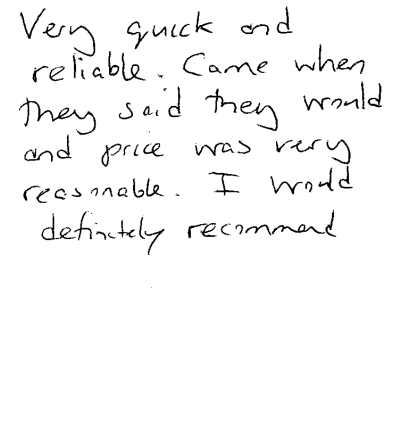 Very quick and
reliable. Came when
they said they would
and price was very
reasonable. I would
definitely recommend